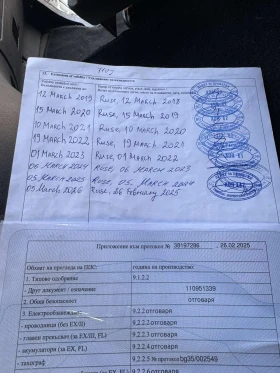 12 March 2019 Ruse, 12 March 2018
15 March 2020 Ruse, 15 March 2019
10 March 2021 Ruse, 10 March 2020
19 March 2022 Ruse, 19 March 2021
01 March 2023 Ruse, 01 March 2022
06 March 2024 Ruse, 06 March 2023
05 March 2025 Ruse, 05. March 2024
05 March 2026 Ruse, 06 February 2025
Приложение към протокол № 38197286 , 26.02.2025
Обхват на прегледа на ППС: година на производство:
1. Типово одобрение 9.1.2.2
- Друг документ / означение 110951339
2. Обща безопасност отговаря
3. Електрооборудване:
- проводници (без EX/II) 9.2.2.2 отговаря
- главен прекъсвач (за EX/III, FL) 9.2.2.3 отговаря
- акумулатори (за EX, FL) 9.2.2.4 отговаря
- тахограф 9.2.2.5 № протокол bg35/002549
9.2.2.6 отговаря